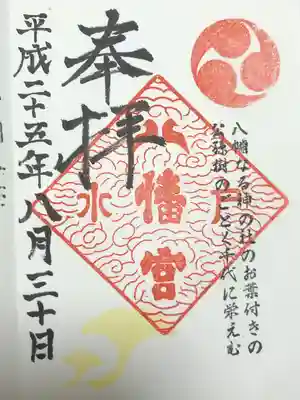 八幡なる神の杜のお葉付きの
公孫樹のごとく千代に栄えむ
奉拝
八幡宮
水
平成二十五年八月三十日